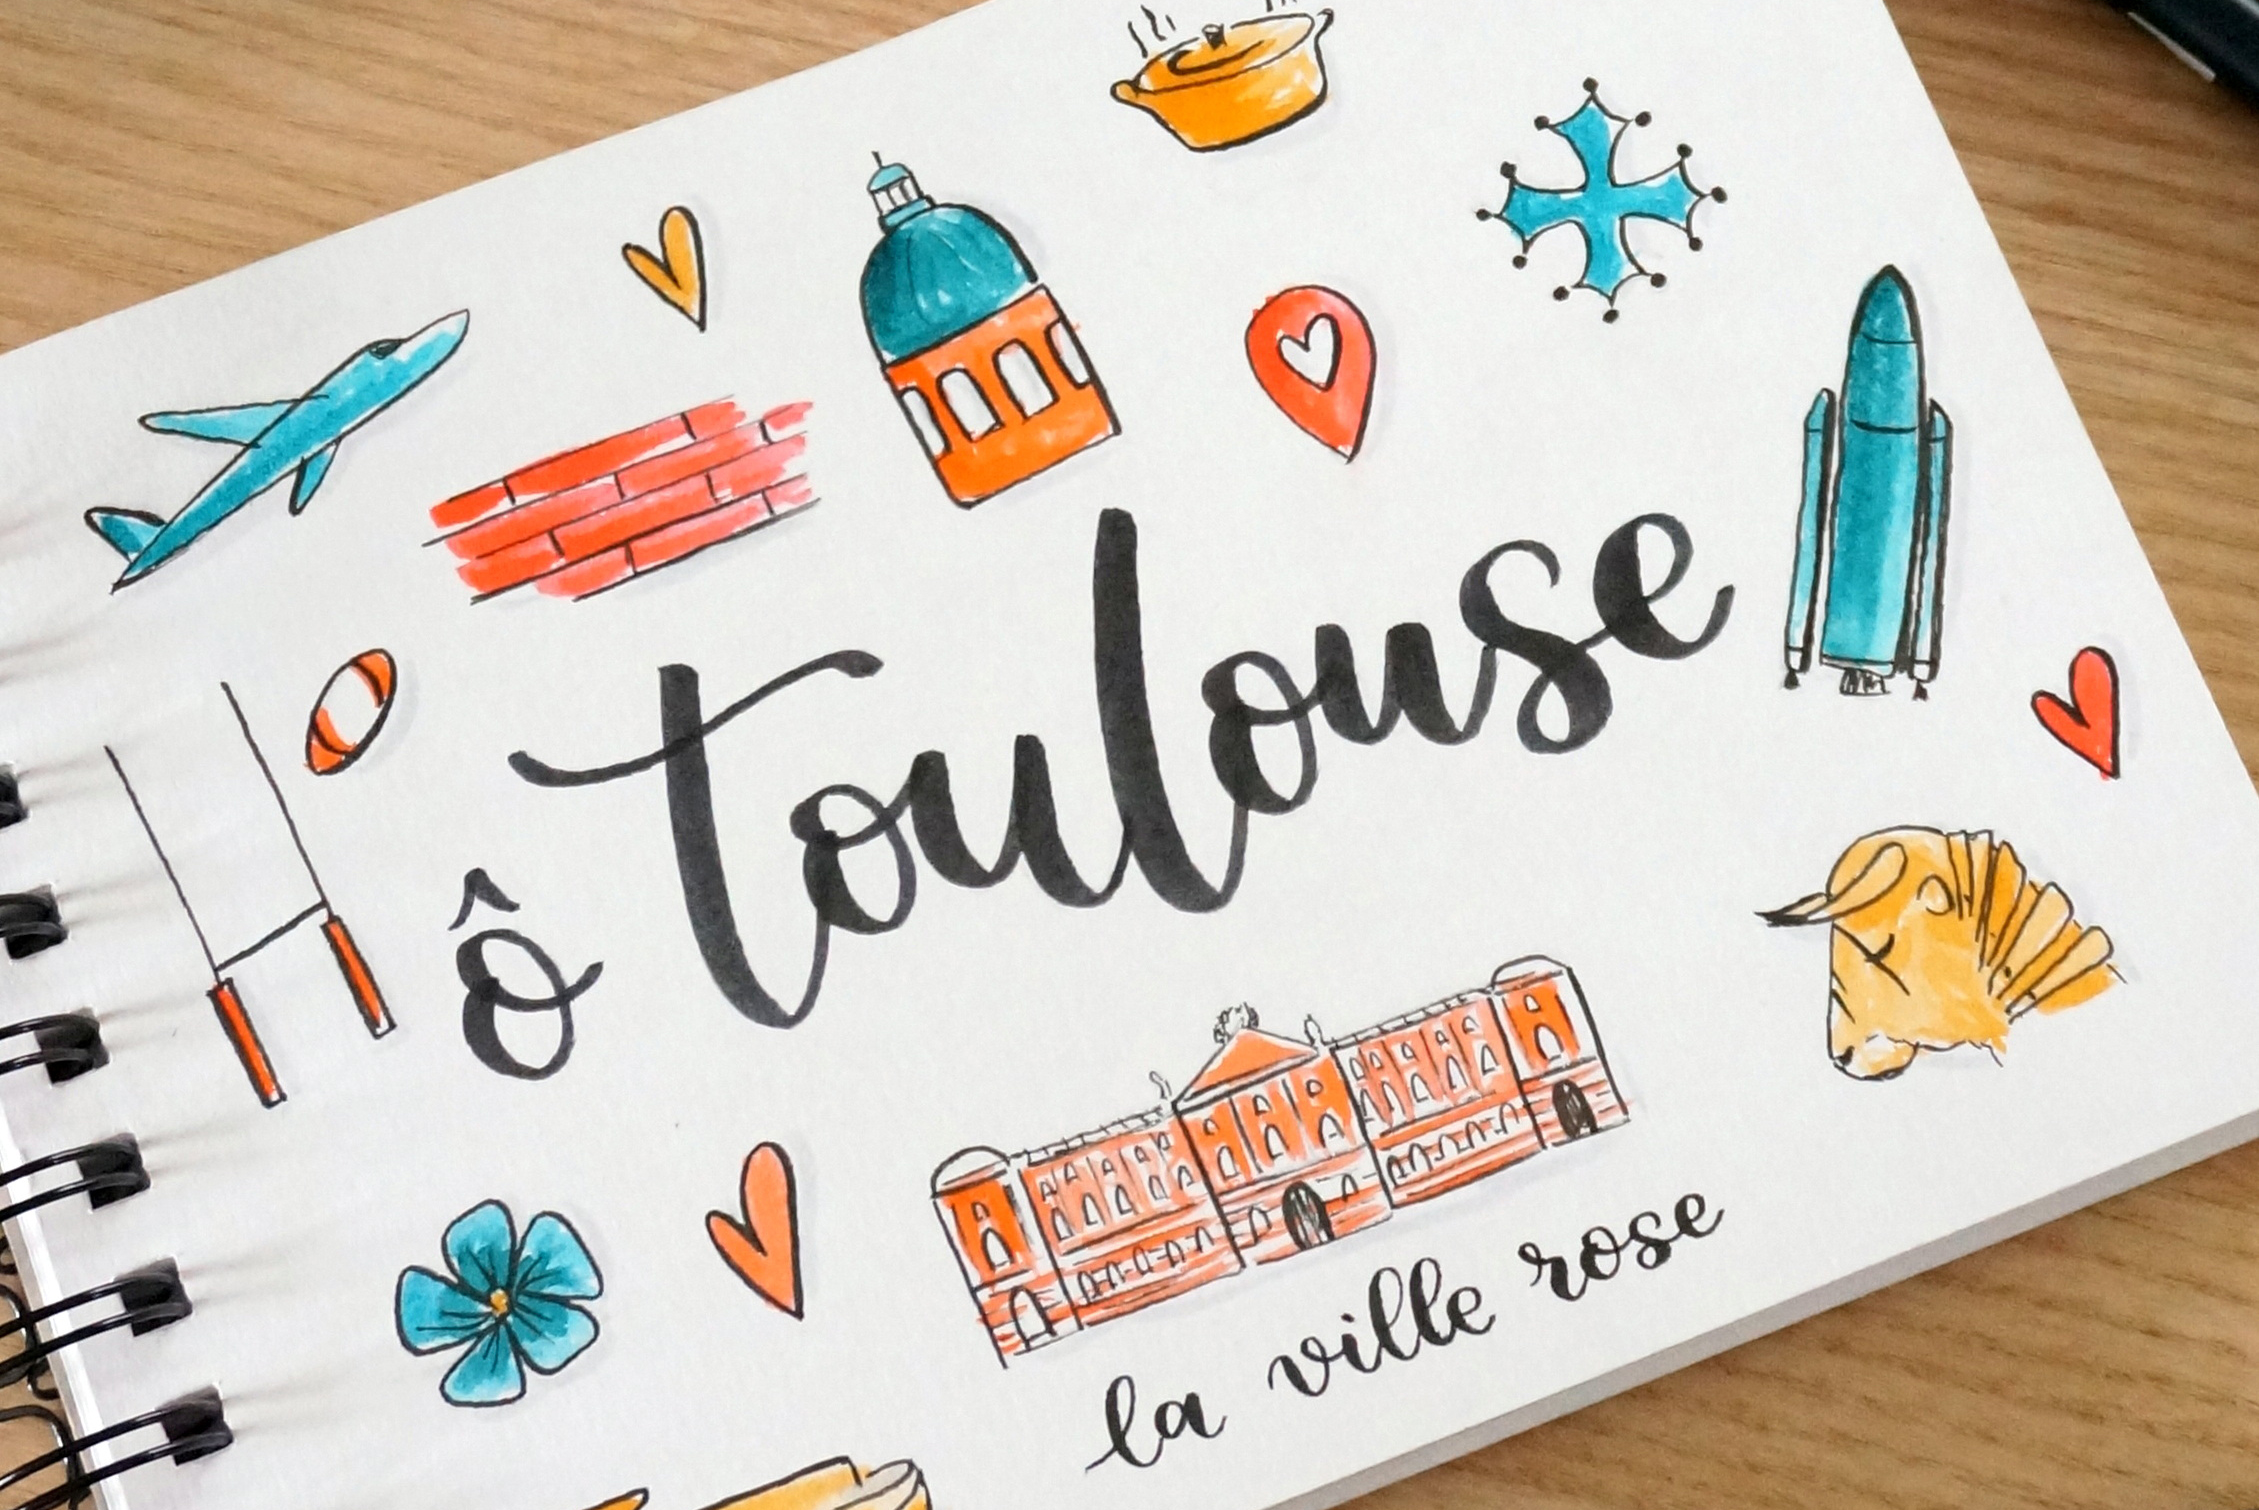 ô toulouse
la ville rose